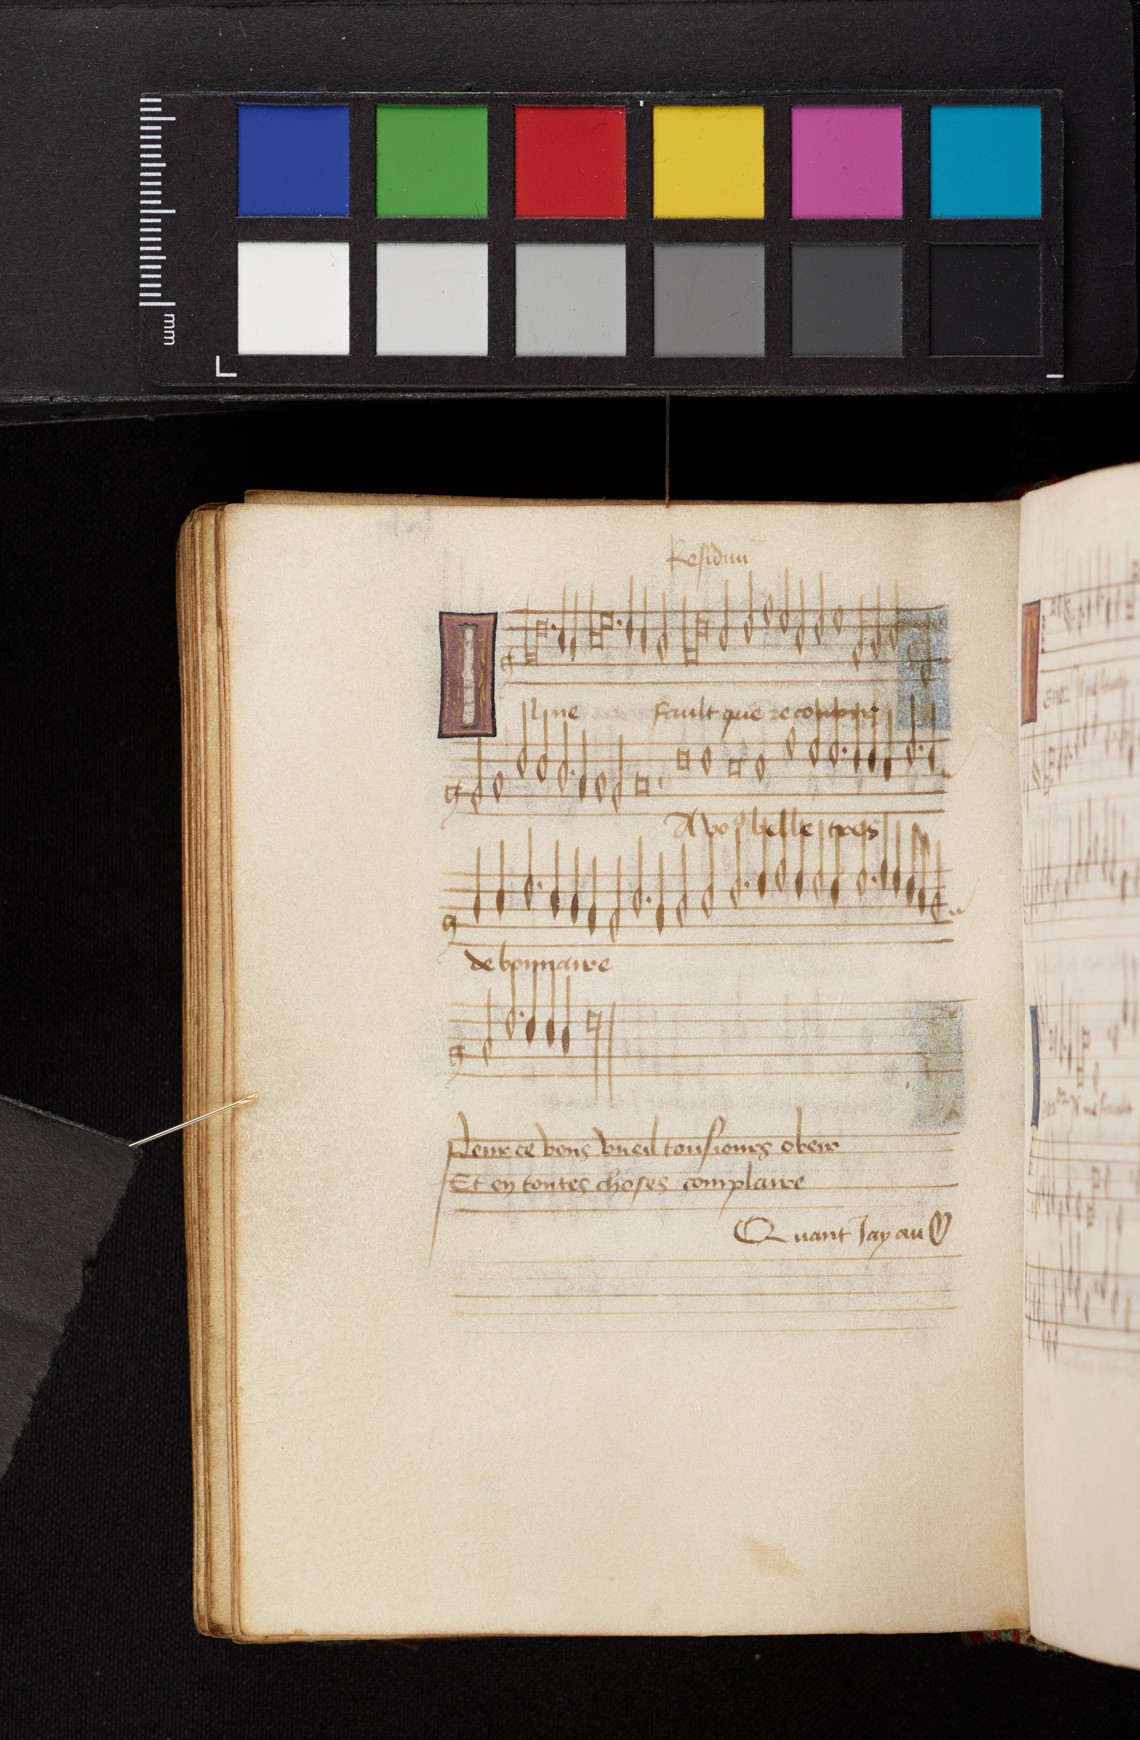 mm
Residuu
Il me fault que re comptes
A vo9 belle tres
debonnaire
Pour ce vous vueil tousiours obeir
Et en toutes choses complaire
Quant Jay au